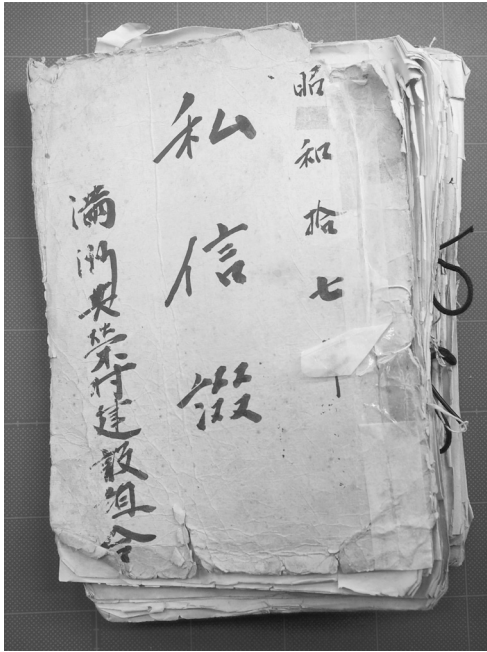 昭和拾七
私信綴
満洲興榮村建設組合